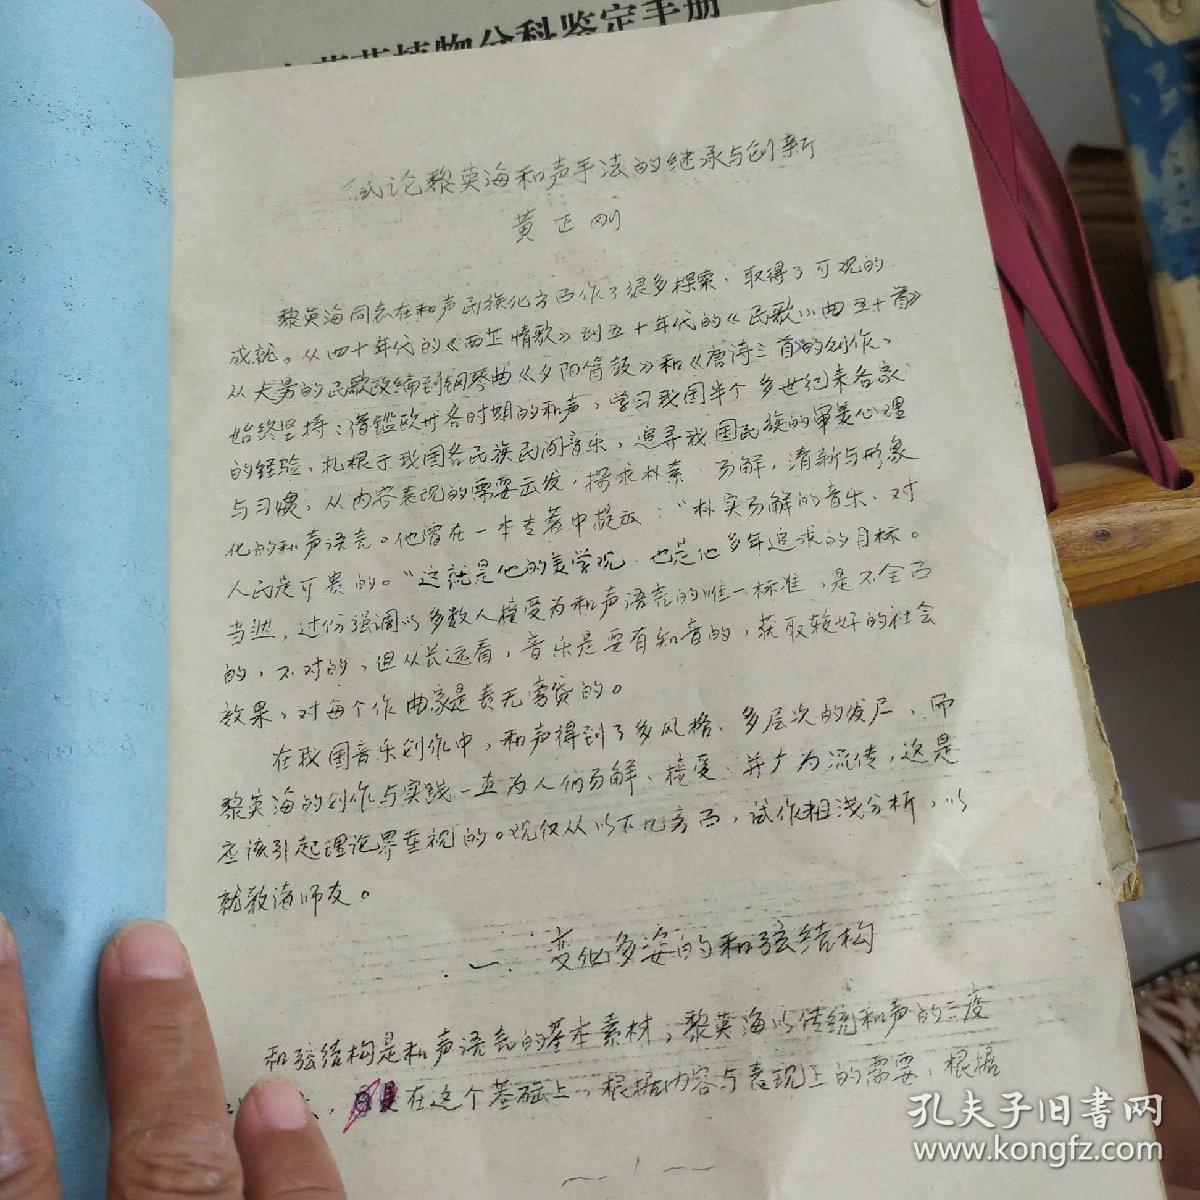 植物分科鉴定手册
试论黎英海和声手法的继承与创新
黄正刚
黎英海同志在和声民族化方面作了很多探索、取得了可观的
成就。从四十年代的《西芷情歌》到五十年代的《民歌小曲五十首》
从大男的民歌改编到钢琴曲《夕阳箫鼓》和《唐诗三首》的创作、
始终坚持：借鉴欧州各时期的和声，学习我国半个多世纪来各家
的经验，扎根于我国各民族民间音乐，追寻我国民族的审美心理
与习惯，从内容表现的需要出发，探求朴素、易解，清新与形象
化的和声语言。他曾在一本专著中提出：“朴实易解的音乐、对
人民是可贵的。”这就是他的美学观，也是他多年追求的目标。
当然，过份强调以多数人接受为和声语言的唯一标准，是不全面
的，不对的，但从长远看，音乐是要有知音的，获取较好的社会
效果，对每个作曲家是责无旁贷的。
在我国音乐创作中，和声得到了多风格、多层次的发尸，而
黎英海的创作与实践一直为人们易解、接受、并广为流传，这是
应该引起理论界重视的。现仅从以下几方面，试作粗浅分析，以
就教诸师友。
一、变化多姿的和弦结构
和弦结构是和声语言的基本素材，黎英海以传统和声的三度
在这个基础上，根据内容与表现上的需要，根据
— 1 —
孔夫子旧书网
www.kongfz.com